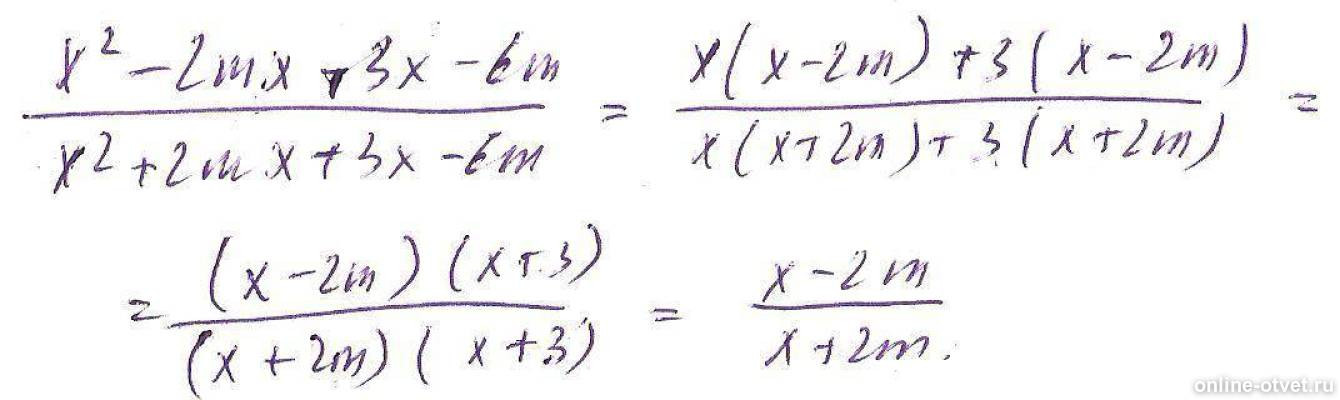 x² - 2mx + 3x - 6m / x² + 2mx + 3x - 6m = x(x - 2m) + 3(x - 2m) / x(x + 2m) + 3(x + 2m) =
= (x - 2m)(x + 3) / (x + 2m)(x + 3) = x - 2m / x + 2m.
online-otvet.ru